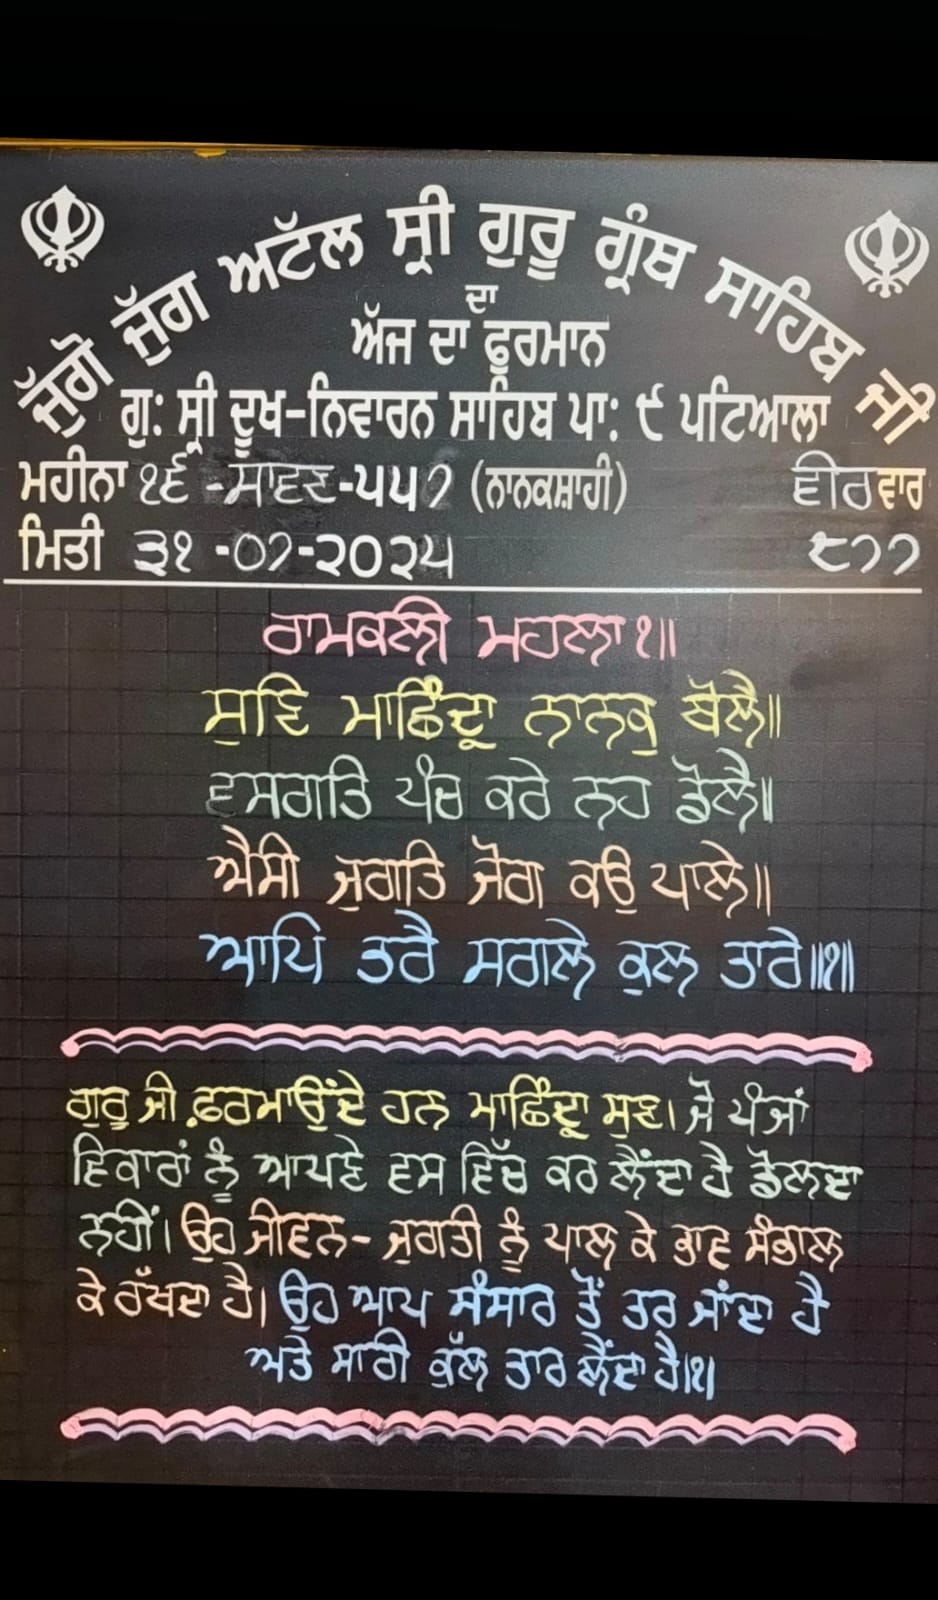 ਜੁੱਗੋ ਜੁੱਗ ਅਟੱਲ ਸ੍ਰੀ ਗੁਰੂ ਗ੍ਰੰਥ ਸਾਹਿਬ ਜੀ
ਦਾ
ਅੱਜ ਦਾ ਫੁਰਮਾਨ
ਗੁ: ਸ੍ਰੀ ਦੂਖ-ਨਿਵਾਰਨ ਸਾਹਿਬ ਪਾ: ੯ ਪਟਿਆਲਾ
ਮਹੀਨਾ ੧੬ -ਸਾਵਣ-੫੫੭ (ਨਾਨਕਸ਼ਾਹੀ) ਵੀਰਵਾਰ
ਮਿਤੀ ੩੧ -੦੭-੨੦੨੫ ੮੭੭
ਰਾਮਕਲੀ ਮਹਲਾ ੧॥
ਸੁਣਿ ਮਾਛਿੰਦ੍ਰਾ ਨਾਨਕੁ ਬੋਲੈ॥
ਵਸਗਤਿ ਪੰਚ ਕਰੇ ਨਹ ਡੋਲੈ॥
ਐਸੀ ਜੁਗਤਿ ਜੋਗ ਕਉ ਪਾਲੇ॥
ਆਪਿ ਤਰੈ ਸਗਲੇ ਕੁਲ ਤਾਰੇ॥੧॥
ਗੁਰੂ ਜੀ ਫ਼ਰਮਾਉਂਦੇ ਹਨ ਮਾਛਿੰਦ੍ਰਾ ਸੁਣ। ਜੋ ਪੰਜਾਂ
ਵਿਕਾਰਾਂ ਨੂੰ ਆਪਣੇ ਵਸ ਵਿੱਚ ਕਰ ਲੈਂਦਾ ਹੈ ਡੋਲਦਾ
ਨਹੀਂ। ਉਹ ਜੀਵਨ- ਜੁਗਤੀ ਨੂੰ ਪਾਲ ਕੇ ਭਾਵ ਸੰਭਾਲ
ਕੇ ਰੱਖਦਾ ਹੈ। ਉਹ ਆਪ ਸੰਸਾਰ ਤੋਂ ਤਰ ਜਾਂਦਾ ਹੈ
ਅਤੇ ਸਾਰੀ ਕੁੱਲ ਤਾਰ ਲੈਂਦਾ ਹੈ।੧।